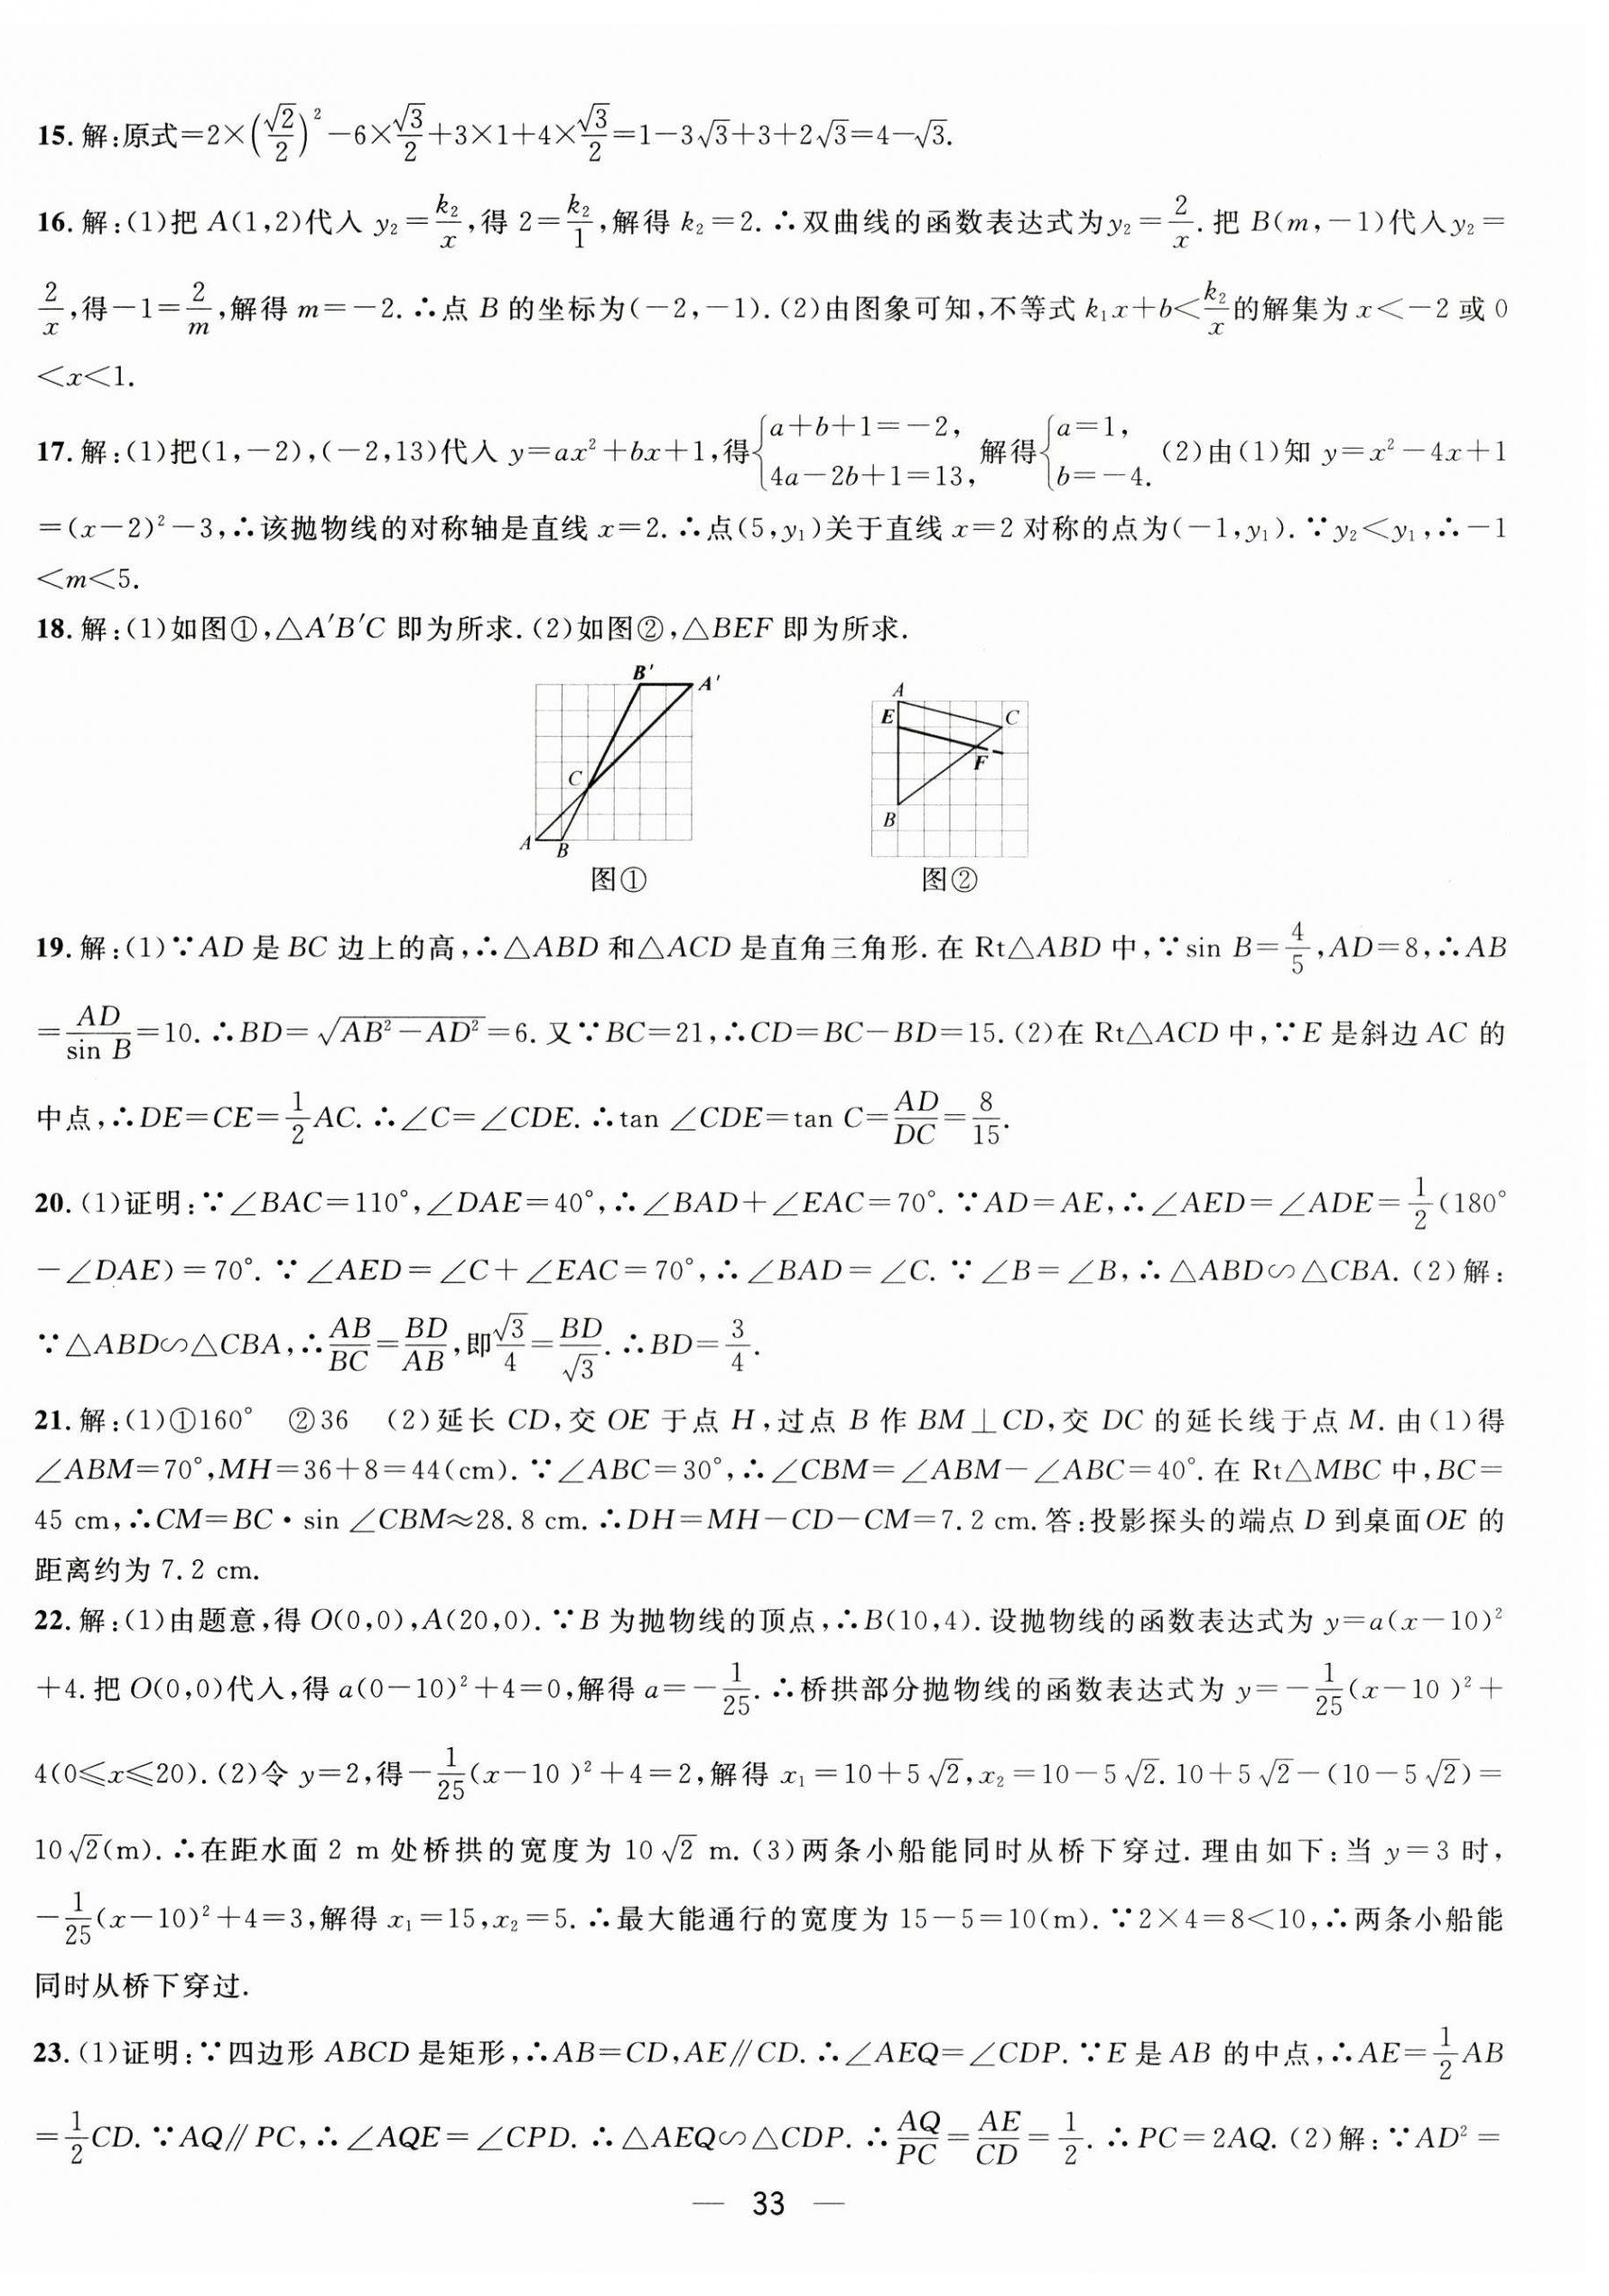 15. 解:原式=2×(√2/2)²−6×√3/2+3×1+4×√3/2=1−3√3+3+2√3=4−√3.
16. 解:(1)把 A(1,2)代入 y₂=k₂/x,得 2=k₂/1,解得 k₂=2.∴双曲线的函数表达式为y₂=2/x.把 B(m,−1)代入y₂=
2/x,得−1=2/m,解得 m=−2.∴点 B 的坐标为(−2,−1).(2)由图象可知,不等式 k₁x+b<k₂/x的解集为 x<−2 或 0
<x<1.
17. 解:(1)把(1,−2),(−2,13)代入 y=ax²+bx+1,得{a+b+1=−2, 4a−2b+1=13, 解得{a=1, b=−4. (2)由(1)知 y=x²−4x+1
=(x−2)²−3,∴该抛物线的对称轴是直线 x=2.∴点(5,y₁)关于直线 x=2 对称的点为(−1,y₁).∵y₂<y₁,∴−1
<m<5.
18. 解:(1)如图①,△A′B′C 即为所求.(2)如图②,△BEF 即为所求.
B′
A′
C
A
B
图①
A
E
C
F
B
图②
19. 解:(1)∵AD 是 BC 边上的高,∴△ABD 和△ACD 是直角三角形.在 Rt△ABD 中,∵sin B=4/5,AD=8,∴AB
=AD/sin B=10.∴BD=√(AB²−AD²)=6.又∵BC=21,∴CD=BC−BD=15.(2)在 Rt△ACD 中,∵E 是斜边 AC 的
中点,∴DE=CE=1/2AC.∴∠C=∠CDE.∴tan ∠CDE=tan C=AD/DC=8/15.
20. (1)证明:∵∠BAC=110°,∠DAE=40°,∴∠BAD+∠EAC=70°.∵AD=AE,∴∠AED=∠ADE=1/2(180°
−∠DAE)=70°.∵∠AED=∠C+∠EAC=70°,∴∠BAD=∠C.∵∠B=∠B,∴△ABD∽△CBA.(2)解:
∵△ABD∽△CBA,∴AB/BC=BD/AB,即√3/4=BD/√3.∴BD=3/4.
21. 解:(1)①160° ②36 (2)延长 CD,交 OE 于点 H,过点 B 作 BM⊥CD,交 DC 的延长线于点 M.由(1)得
∠ABM=70°,MH=36+8=44(cm).∵∠ABC=30°,∴∠CBM=∠ABM−∠ABC=40°.在 Rt△MBC 中,BC=
45 cm,∴CM=BC·sin ∠CBM≈28.8 cm.∴DH=MH−CD−CM=7.2 cm.答:投影探头的端点 D 到桌面OE 的
距离约为 7.2 cm.
22. 解:(1)由题意,得 O(0,0),A(20,0).∵B 为抛物线的顶点,∴B(10,4).设抛物线的函数表达式为 y=a(x−10)²
+4.把 O(0,0)代入,得 a(0−10)²+4=0,解得 a=−1/25.∴桥拱部分抛物线的函数表达式为 y=−1/25(x−10 )²+
4(0≤x≤20).(2)令 y=2,得−1/25(x−10 )²+4=2,解得 x₁=10+5√2,x₂=10−5√2.10+5√2−(10−5√2)=
10√2(m).∴在距水面 2 m 处桥拱的宽度为 10√2 m.(3)两条小船能同时从桥下穿过.理由如下:当 y=3 时,
−1/25(x−10)²+4=3,解得 x₁=15,x₂=5.∴最大能通行的宽度为 15−5=10(m).∵2×4=8<10,∴两条小船能
同时从桥下穿过.
23. (1)证明:∵四边形 ABCD 是矩形,∴AB=CD,AE∥CD.∴∠AEQ=∠CDP.∵E 是 AB 的中点,∴AE=1/2AB
=1/2CD.∵AQ∥PC,∴∠AQE=∠CPD.∴△AEQ∽△CDP.∴AQ/PC=AE/CD=1/2.∴PC=2AQ.(2)解:∵AD²=
— 33 —